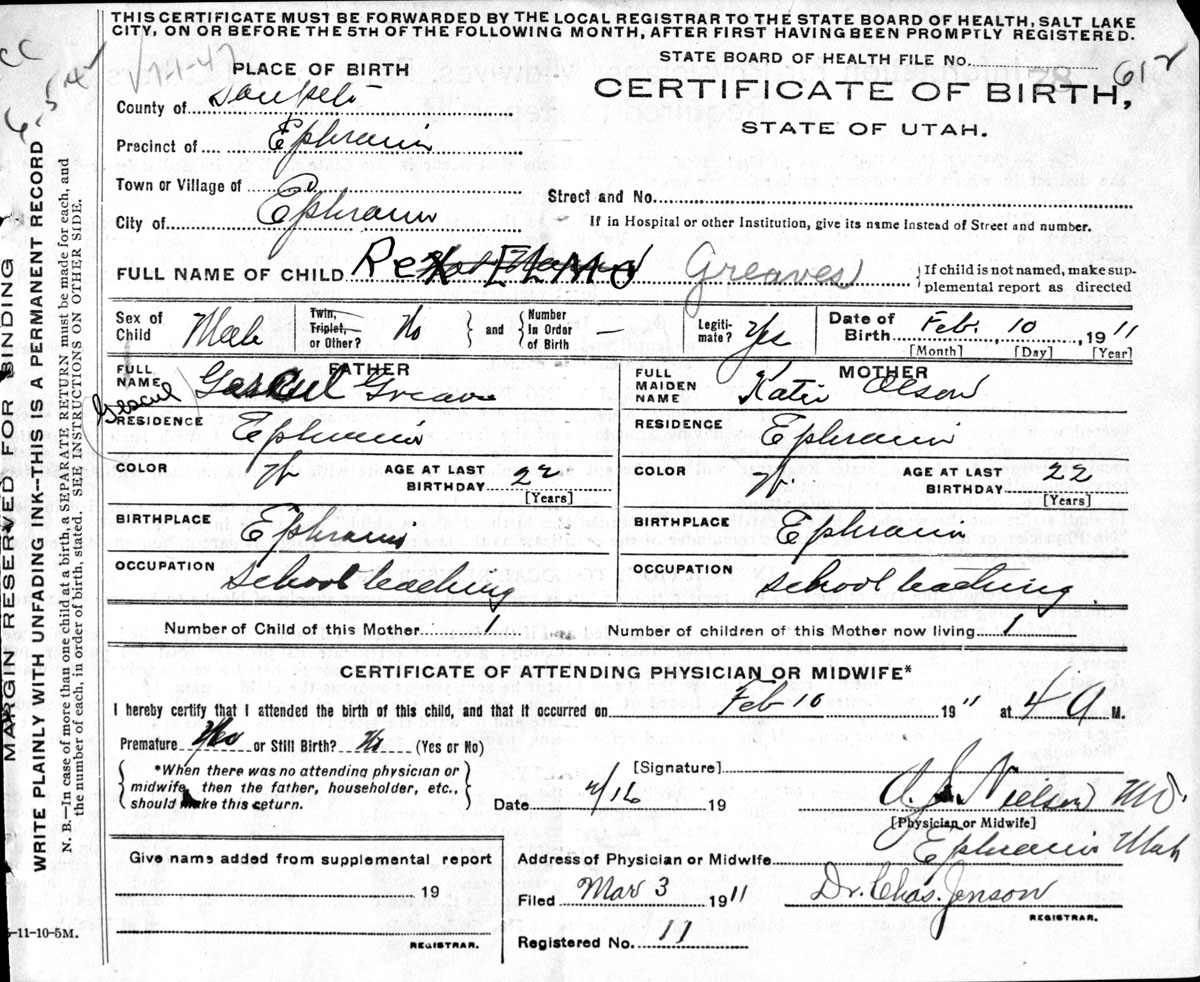 THIS CERTIFICATE MUST BE FORWARDED BY THE LOCAL REGISTRAR TO THE STATE BOARD OF HEALTH, SALT LAKE
CITY, ON OR BEFORE THE 5TH OF THE FOLLOWING MONTH, AFTER FIRST HAVING BEEN PROMPTLY REGISTERED.
STATE BOARD OF HEALTH FILE No. 612
CERTIFICATE OF BIRTH,
STATE OF UTAH.
PLACE OF BIRTH
County of Sanpete
Precinct of Ephraim
Town or Village of
Street and No.
City of Ephraim
If in Hospital or other Institution, give its name Instead of Street and number.
FULL NAME OF CHILD Rex ELMO Greaves
If child is not named, make supplemental report as directed
Sex of Child Male
Twin, Triplet, or Other? No
and Number In Order of Birth —
Legitimate? Yes
Date of Birth Feb. 10, 1911
[Month] [Day] [Year]
FATHER
FULL NAME Greave
Gescul
RESIDENCE Ephraim
COLOR W
AGE AT LAST BIRTHDAY 22
[Years]
BIRTHPLACE Ephraim
OCCUPATION School teaching
MOTHER
FULL MAIDEN NAME Katie Olson
RESIDENCE Ephraim
COLOR W.
AGE AT LAST BIRTHDAY 22
[Years]
BIRTHPLACE Ephraim
OCCUPATION School teaching.
Number of Child of this Mother 1
Number of children of this Mother now living 1
CERTIFICATE OF ATTENDING PHYSICIAN OR MIDWIFE*
I hereby certify that I attended the birth of this child, and that it occurred on Feb 10 1911 at 4 A M.
Premature No or Still Birth? No (Yes or No)
*When there was no attending physician or
midwife, then the father, householder, etc.,
should make this return.
[Signature] Nielson MD.
Date 2/16 19
[Physician or Midwife]
Give name added from supplemental report
19
REGISTRAR.
Address of Physician or Midwife Ephraim Utah
Filed Mar 3 1911
Dr. Chas. Jenson
REGISTRAR.
Registered No. 11
MARGIN RESERVED FOR BINDING
WRITE PLAINLY WITH UNFADING INK--THIS IS A PERMANENT RECORD
N. B.—In case of more than one child at a birth, a SEPARATE RETURN must be made for each, and
the number of each, in order of birth, stated. SEE INSTRUCTIONS ON OTHER SIDE.
-11-10-5M.